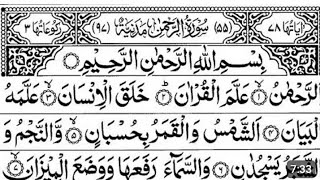 اٰيَاتُهَا ٧٨ (٥٥) سُوْرَةُ الرَّحْمٰنِ مَدَنِيَّةٌ (٩٧) رُكُوْعَاتُهَا ٣
بِسْمِ اللّٰهِ الرَّحْمٰنِ الرَّحِيْمِ
الرَّحْمٰنُ ۙ١ عَلَّمَ الْقُرْاٰنَ ؕ٢ خَلَقَ الْاِنْسَانَ ۙ٣ عَلَّمَهُ
الْبَيَانَ ٤ اَلشَّمْسُ وَ الْقَمَرُ بِحُسْبَانٍ ٥ وَّ النَّجْمُ وَ
يَسْجُدٰنِ ٦ وَ السَّمَآءَ رَفَعَهَا وَ وَضَعَ الْمِيْزَانَ ٧
7:33